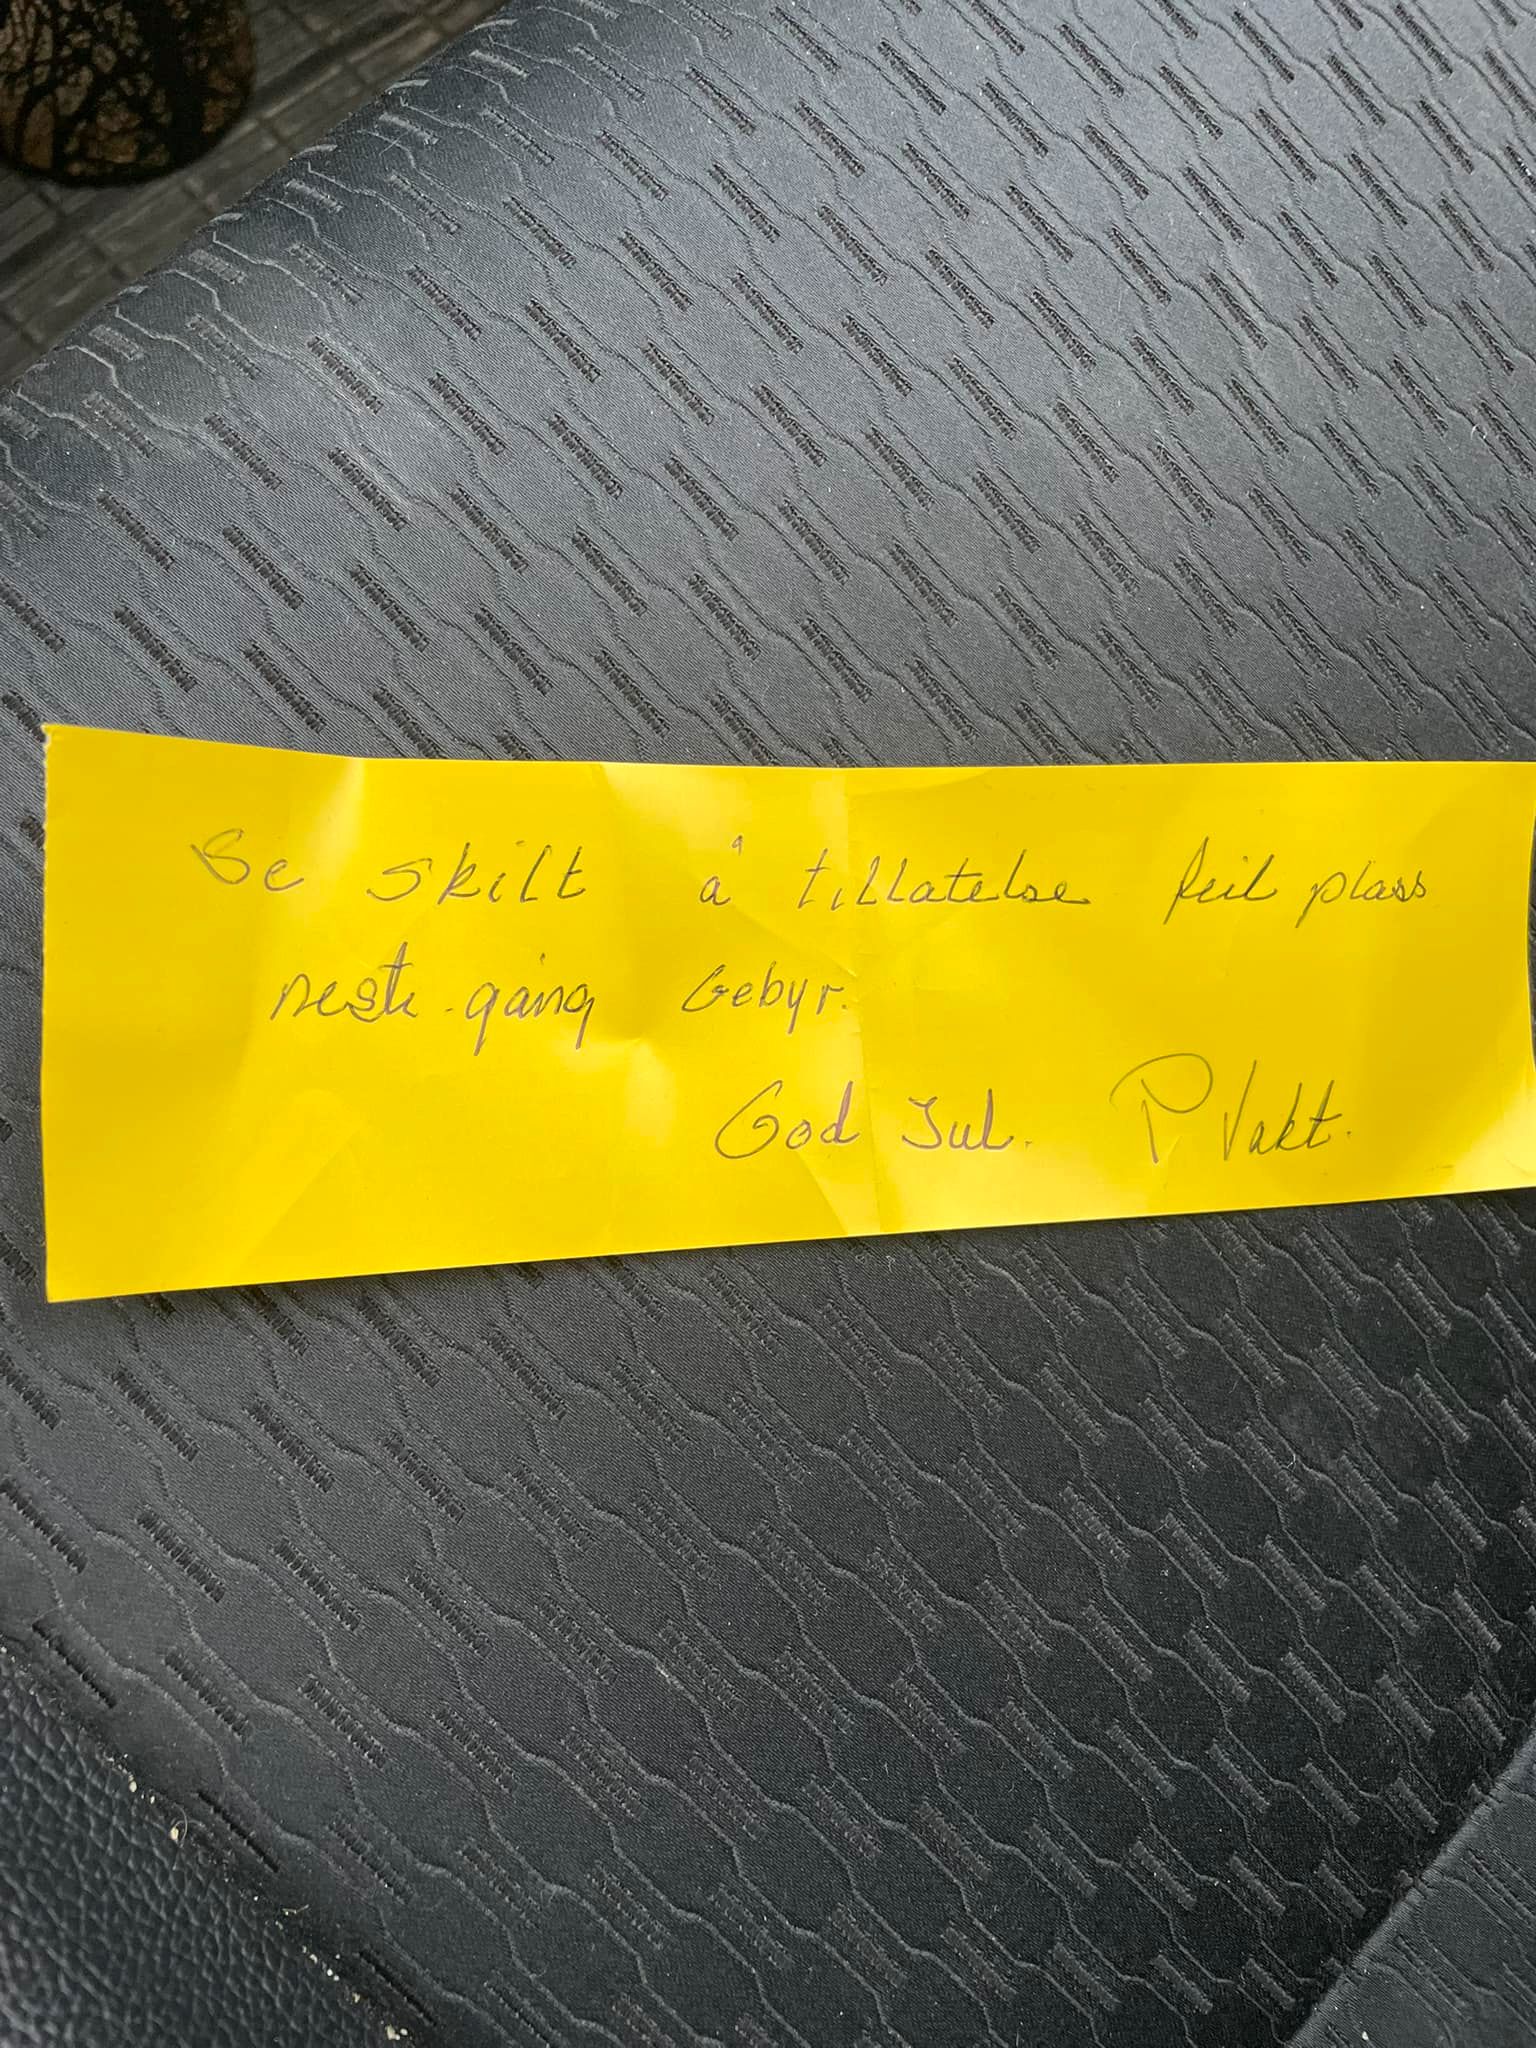 Se skilt å tillatelse feil plass
neste gang Gebyr.
God Jul. P Vakt.